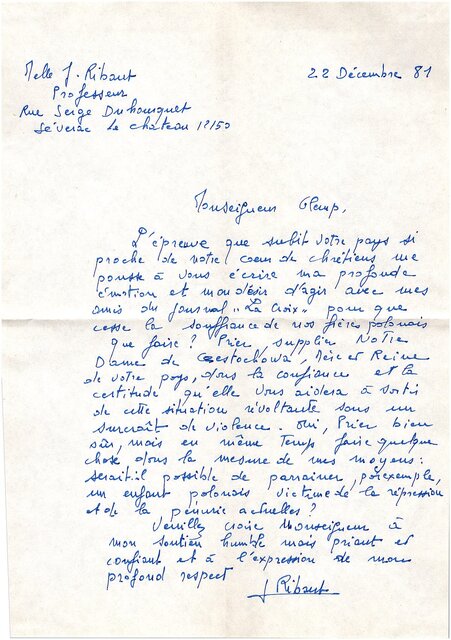 Melle J. Ribaut
Professeur
Rue Serge Duhourquet
Séverac le château 12150
22 Décembre 81
Monseigneur Glemp,
L'épreuve que subit votre pays si
proche de notre coeur de chrétiens me
pousse à vous écrire ma profonde
émotion et mon désir d'agir avec mes
amis du journal "La Croix" pour que
cesse la souffrance de nos frères polonais
que faire? Prier, supplier Notre
Dame de Czestochowa, Mère et Reine
de votre pays, dans la confiance et la
certitude qu'elle vous aidera à sortir
de cette situation révoltante sans un
surcroît de violence. Oui, Prier bien
sûr, mais en même temps faire quelque
chose dans la mesure de mes moyens:
serait-il possible de parrainer, par exemple,
un enfant polonais victime de la répression
et de la pénurie actuelles?
Veuillez croire Monseigneur à
mon soutien humble mais priant et
confiant et à l'expression de mon
profond respect
J Ribaut